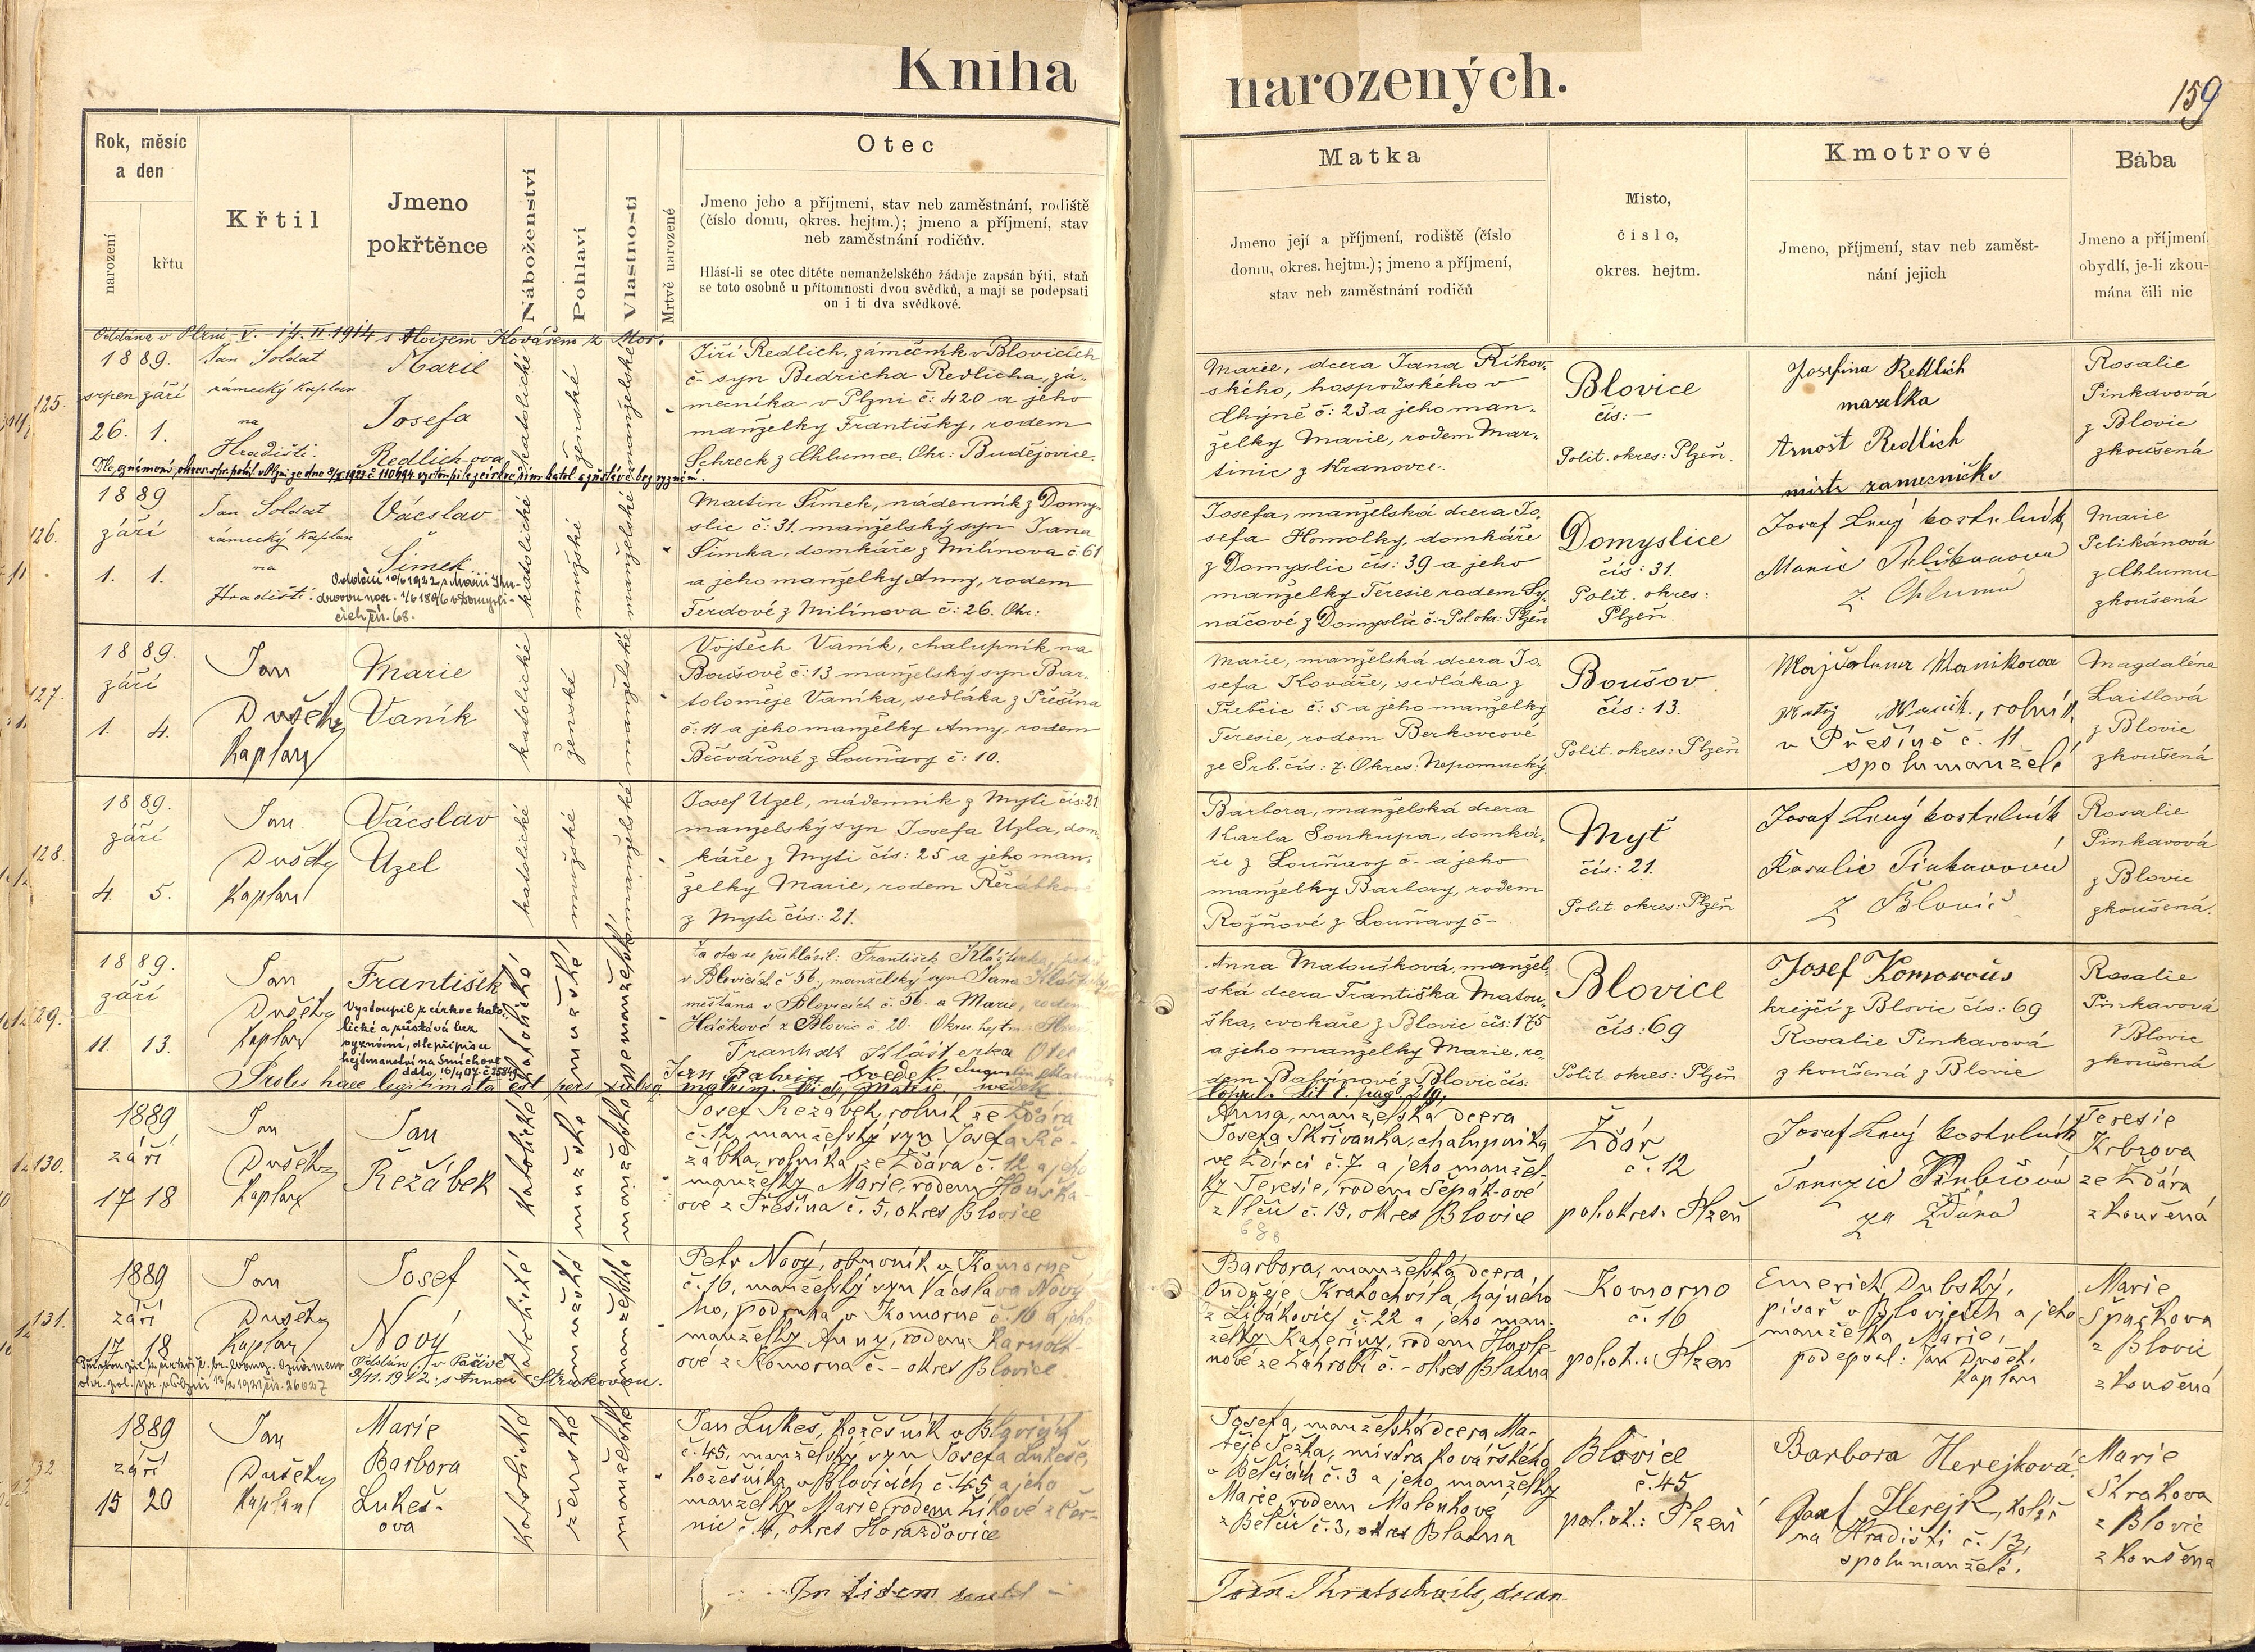 Kniha narozených.
159
Rok, měsíc
a den
narození
křtu
Křtil
Jmeno
pokřtěnce
Náboženství
Pohlaví
Vlastnosti
Mrtvě narozené
Otec
Jmeno jeho a příjmení, stav neb zaměstnání, rodiště
(číslo domu, okres. hejtm.); jmeno a příjmení, stav
neb zaměstnání rodičův.
Hlásí-li se otec dítěte nemanželského žádaje zapsán býti, staň
se toto osobně u přítomnosti dvou svědků, a mají se podepsati
on i ti dva svědkové.
Matka
Jmeno její a příjmení, rodiště (číslo
domu, okres. hejtm.); jmeno a příjmení,
stav neb zaměstnání rodičů
Místo,
číslo,
okres. hejtm.
Kmotrové
Jmeno, příjmení, stav neb zaměst-
nání jejich
Bába
Jmeno a příjmení,
obydlí, je-li zkou-
mána čili nic
Oddána v Plzni V. 14. II. 1914 s Aloisem Kovářem z Mor.
125.
1889.
srpen září
26. 1.
Jan Soldat
zámecký kaplan
na
Hradišti.
Marie
Josefa
Redlich-ova
katolické
ženské
manželské
Jiří Redlich, zámečník v Blovicích
č- syn Bedřicha Redlicha, zá-
mečníka v Plzni č: 420 a jeho
manželky Františky, rodem
Schreck z Chlumce, Okr: Budějovice.
Marie, dcera Jana Říkov-
ského, hospodského v
Chýně č: 23 a jeho man-
želky Marie, rodem Mar-
tinic z Kranovce.
Blovice
čís: -
Polit. okres: Plzeň.
Josefina Redlich
Arnošt Redlich
Rosalie
Pinkavová
z Blovic
zkoušená
126.
1889
září
1. 1.
Jan Soldat
zámecký kaplan
na
Hradišti.
Václav
Šimek
čís. 68.
katolické
mužské
manželské
Martin Šimek, nádenník z Domy-
slic č: 31. manželský syn Jana
Šimka, domkáře z Milínova č 61
a jeho manželky Anny, rodem
Ferdové z Milínova č: 26. Okr:
Josefa, manželská dcera Jo-
sefa Homolky, domkáře
z Domyslic čís: 39 a jeho
manželky Teresie rodem Sy-
náčové z Domyslic č:- Pol. okr: Plzeň
Domyslice
čís: 31.
Polit. okres:
Plzeň.
Marie Pelikanova
z Chlumu
Marie
Pelikánová
z Chlumu
zkoušená
127.
1889.
září
1. 4.
Jan
Dušek
kaplan
Marie
Vaník
katolické
ženské
manželské
Vojtěch Vaník, chalupník na
Boušově č: 13 manželský syn Bar-
toloměje Vaníka, sedláka z Přešína
č: 11 a jeho manželky Anny, rodem
Bečvářové z Louňavy č: 10.
Marie, manželská dcera Jo-
sefa Kováře, sedláka z
Třebčic č: 5 a jeho manželky
Teresie, rodem Berkovcové
ze Srb. čís: 7. Okres: Nepomucký.
Boušov
čís: 13.
Polit. okres: Plzeň
v Přešíně č. 11
spolumanželé
Magdaléna
Laitlová
z Blovic
zkoušená
128.
1889.
září
4. 5.
Jan
Dušek
kaplan
Václav
Uzel
katolické
mužské
manželské
Josef Uzel, nádenník z Mytí čís: 21
manželský syn Josefa Uzla, dom-
káře z Mytí čís: 25 a jeho man-
želky Marie, rodem Řeřábkové
z Mytí čís: 21.
Barbora, manželská dcera
Karla Soukupa, domká-
ře z Louňavy č- a jeho
manželky Barbory, rodem
Rožňové z Louňavy č-
Myť
čís: 21.
Polit. okres: Plzeň
Rosalie Pinkavová
z Blovic
Rosalie
Pinkavová
z Blovic
zkoušená.
129.
1889.
září
11. 13.
Jan
Dušek
kaplan
František
Vystoupil z církve kato-
lické a zůstává bez
vyznání, dle přípisu
hejtmanství na Smíchově
katolické
mužské
nemanželské
Za otce se přihlásil: František Klášterka,
v Blovicích č 56., manželský syn Jana
měšťana v Blovicích č. 56. a Marie, rodem
Háčkové z Blovic č. 20. Okres hejtm.
František Klášterka Otec
Proles haec legitimata est per subseq. matrim.
Anna Matoušková, manžel-
ská dcera Františka Matou-
ška, cvokaře z Blovic čís: 175
a jeho manželky Marie, ro-
dem Balvínové z Blovic čís:
Blovice
čís: 69
Polit. okres: Plzeň
Josef Komorous
krejčí z Blovic čís: 69
Rosalie Pinkavová
zkoušená z Blovic
Rosalie
Pinkavová
z Blovic
zkoušená
130.
1889
září
17 18
Jan
Dušek
kaplan
Jan
Řežábek
katolické
mužské
manželské
Josef Řežábek, rolník ze Ždára
č. 12, manželský syn Josefa Ře-
žábka, rolníka ze Ždára č. 12 a jeho
manželky Marie, rodem Houška-
ové z Přešína č. 5, okres Blovice
Anna, manželská dcera
Josefa Skřivánka, chalupníka
ve Ždírci č. 7 a jeho manžel-
ky Teresie, rodem Šepák-ové
z Vlčic č. 15, okres Blovice
Ždár
č. 12
pol. okres: Plzeň
ze Ždára
Teresie
Krbzova
ze Ždára
zkoušená
131.
1889
září
17 18
Jan
Dušek
kaplan
Josef
Nový
katolické
mužské
manželské
Petr Nový, obuvník v Komorně
č. 16, manželský syn Václava Nové-
ho, podruha v Komorně č. 16 a jeho
manželky Anny, rodem
ové z Komorna č. - okres Blovice.
Barbora, manželská dcera
Ondřeje Kratochvíla, hajného
z Libákovic č. 22 a jeho man-
želky Kateřiny, rodem Havle-
nové ze Záhrobí č. - okres Blatna
Komorno
č. 16
pol. ok.: Plzeň
Emerich Dubský,
písař v Blovicích a jeho
manželka Marie,
podepsal: Jan Dušek,
kaplan
Marie
Špačkova
z Blovic
zkoušená
132
1889
září
15 20
Jan
Dušek
kaplan
Marie
Barbora
Lukeš-
ova
katolické
ženské
manželské
Jan Lukeš, kožešník v Blovicích
č. 45, manželský syn Josefa Lukeše,
kožešníka v Blovicích č. 45 a jeho
manželky Marie, rodem Zíkové z Čer-
nic č. 4, okres Horažďovice
Josefa, manželská dcera Ma-
těje Ježka, mistra kovářského
v Bělčicích č. 3 a jeho manželky
Marie, rodem Malenkové
z Bělčic č. 3, okres Blatna
Blovice
č. 45
pol. ok.: Plzeň
Barbora Herejková,
Josef Herejk, kolář
na Hradišti č. 13,
spolumanželé.
Marie
Strakova
z Blovic
zkoušena
In fidem